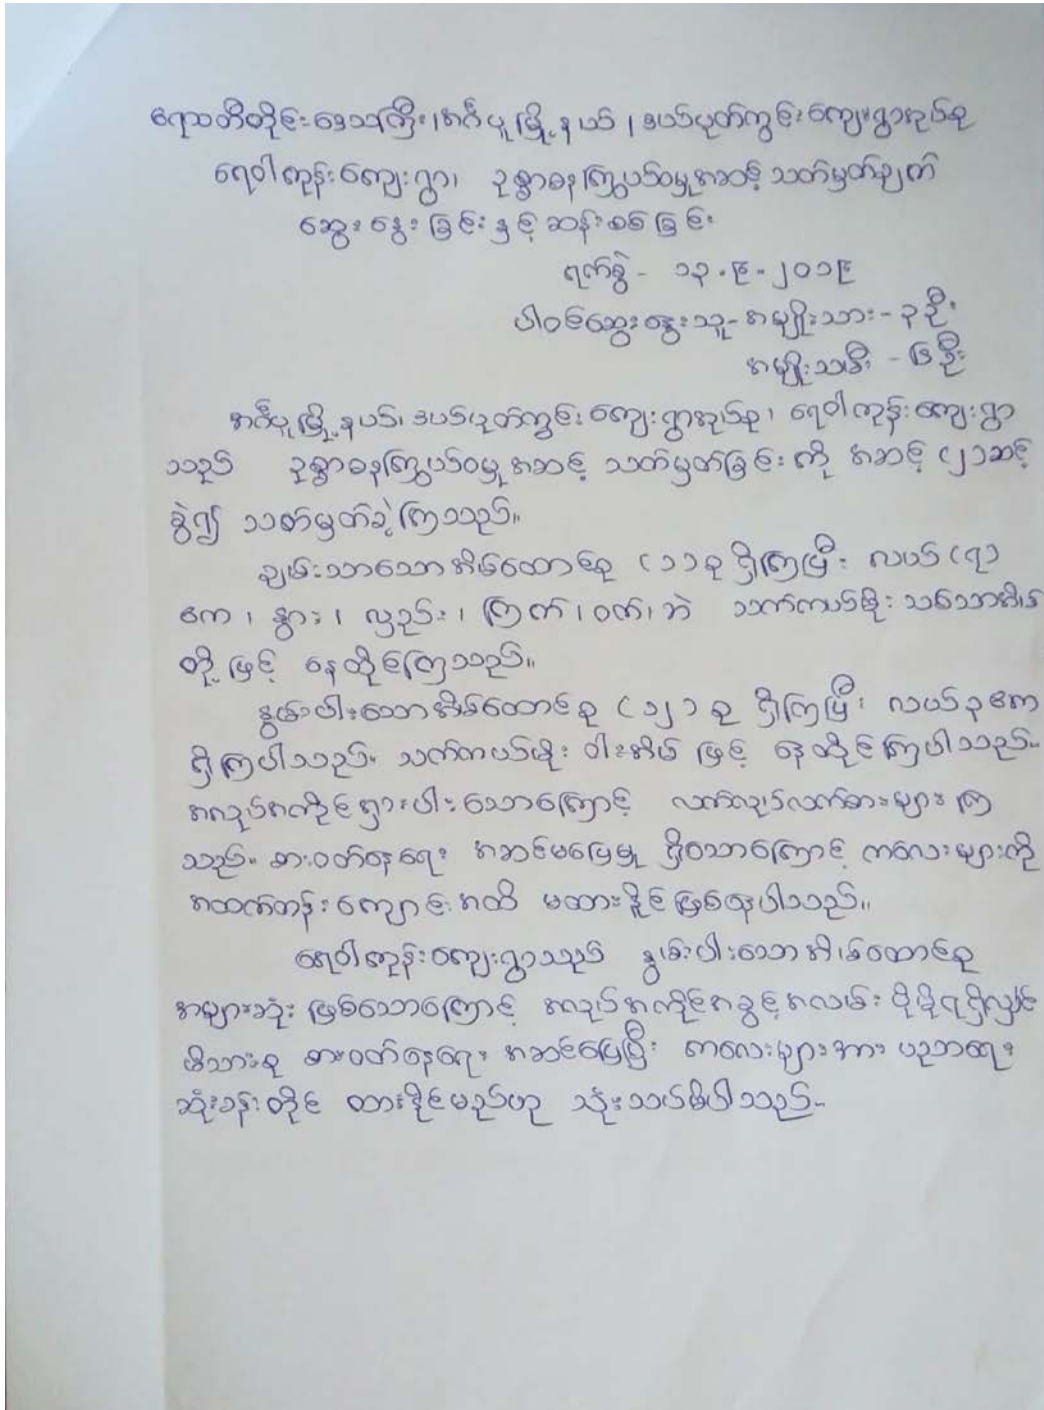 ဧရာဝတီတိုင်းဒေသကြီး၊ အင်္ဂပူမြို့နယ်၊ ဒယ်ပုတ်ကွင်းကျေးရွာအုပ်စု
ရေဝါကုန်းကျေးရွာ၊ ဥစ္စာဓနကြွယ်ဝမှုအဆင့် သတ်မှတ်ချက်
ဆွေးနွေးခြင်းနှင့် ဆန်းစစ်ခြင်း
ရက်စွဲ - ၁၃.၉.၂၀၁၉
ပါဝင်ဆွေးနွေးသူ - အမျိုးသား - ၃ဦး
အမျိုးသမီး - ၆ဦး
အင်္ဂပူမြို့နယ်၊ ဒယ်ပုတ်ကွင်းကျေးရွာအုပ်စု၊ ရေဝါကုန်းကျေးရွာ
သည် ဥစ္စာဓနကြွယ်ဝမှုအဆင့် သတ်မှတ်ခြင်းကို အဆင့် (၂)ဆင့်
ခွဲ၍ သတ်မှတ်ခဲ့ကြသည်။
ချမ်းသာသောအိမ်ထောင်စု (၁)စု ရှိကြပြီး လယ် (၇)
ဧက၊ နွား၊ လှည်း၊ ကြက်၊ ဝက်၊ ဘဲ သက်ကယ်မိုး သစ်သားအိမ်
တို့ဖြင့် နေထိုင်ကြသည်။
နွမ်းပါးသောအိမ်ထောင်စု (၁၂) စု ရှိကြပြီး လယ် ၃ ဧက
ရှိကြပါသည်။ သက်ကယ်မိုး ဝါးအိမ် ဖြင့် နေထိုင်ကြပါသည်။
အလုပ်အကိုင်ရှားပါးသောကြောင့် လက်လုပ်လက်စားများကြ
သည်။ စားဝတ်နေရေး အဆင်မပြေမှု ရှိသောကြောင့် ကလေးများကို
အထက်တန်းကျောင်းအထိ မထားနိုင်ဖြစ်နေပါသည်။
ရေဝါကုန်းကျေးရွာသည် နွမ်းပါးသောအိမ်ထောင်စု
အများဆုံး ဖြစ်သောကြောင့် အလုပ်အကိုင်အခွင့်အလမ်း ပိုမိုရရှိလျှင်
မိသားစု စားဝတ်နေရေး အဆင်ပြေပြီး ကလေးများအား ပညာရေး
ဆုံးခန်းတိုင် ထားနိုင်မည်ဟု သုံးသပ်မိပါသည်။